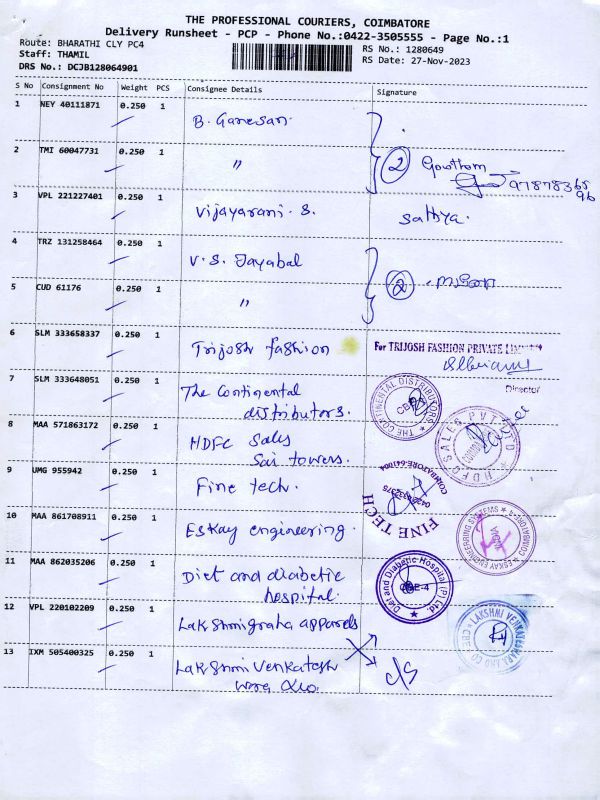 THE PROFESSIONAL COURIERS, COIMBATORE
Delivery Runsheet - PCP - Phone No.:0422-3505555 - Page No.:1
Route: BHARATHI CLY PC4
RS No.: 1280649
Staff: THAMIL
RS Date: 27-Nov-2023
DRS No.: DCJB128064901
S No Consignment No Weight PCS Consignee Details Signature
1 NEY 40111871 0.250 1 B. Ganesan
2 TMI 60047731 0.250 1 " 2 Gowtham
9787836596
3 VPL 221227401 0.250 1 Vijayarani. S. Sathya.
4 TRZ 131258464 0.250 1 V. S. Jayabal
5 CUD 61176 0.250 1 " 2
6 SLM 333658337 0.250 1 Trijosh fashion For TRIJOSH FASHION PRIVATE LIMITED
Director
7 SLM 333648051 0.250 1 The Continental
distributors.
THE CONTINENTAL DISTRIBUTORS
8 MAA 571863172 0.250 1 HDFC Sales
Sai towers.
HDFC SALES PVT LTD
9 UMG 955942 0.250 1 Fine tech.
FINE TECH
COIMBATORE-641004
10 MAA 861708911 0.250 1 Eskay engineering.
ESKAY ENGINEERING SYSTEMS
11 MAA 862035206 0.250 1 Diet and diabetic
hospital.
Diet and Diabetic Hospital (P) Ltd.
12 VPL 220102209 0.250 1 Lakshmigraha apparels
13 IXM 505400325 0.250 1 Lakshmi Venkatesh
c/s
LAKSHMI VENKATESWARA AND CO